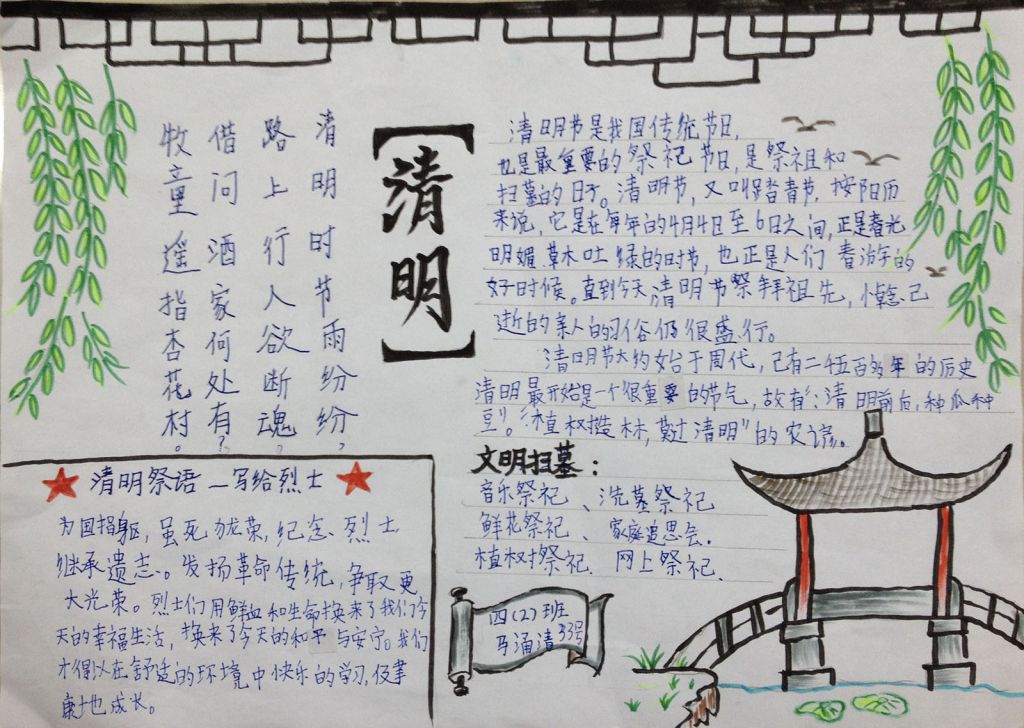 清明时节雨纷纷，
路上行人欲断魂。
借问酒家何处有？
牧童遥指杏花村。
清明
清明节是我国传统节日，
也是最重要的祭祀节日，是祭祖和
扫墓的日子。清明节，又叫踏青节，按阳历
来说，它是在每年的4月4日至6日之间，正是春光
明媚草木吐绿的时节，也正是人们春游的
好时候。直到今天清明节祭拜祖先，悼念已
逝的亲人的习俗仍很盛行。
清明节大约始于周代，已有二千五百多年的历史
清明最开始是一个很重要的节气，故有：清明前后，种瓜种
豆”。“植树造林，莫过清明”的农谚。
文明扫墓：
音乐祭祀、洗墓祭祀
鲜花祭祀、家庭追思会.
植树祭祀. 网上祭祀.
清明祭语—写给烈士
为国捐躯，虽死犹荣，纪念烈士
继承遗志。发扬革命传统，争取更
大光荣。烈士们用鲜血和生命换来了我们今
天的幸福生活，换来了今天的和平与安宁。我们
才得以在舒适的环境中快乐的学习，健
康地成长。
四(2)班
马涌清33号